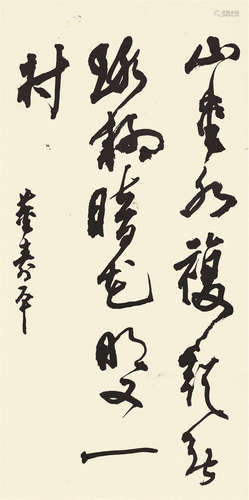 山重水複疑无
路柳暗花明又一
村
董寿平